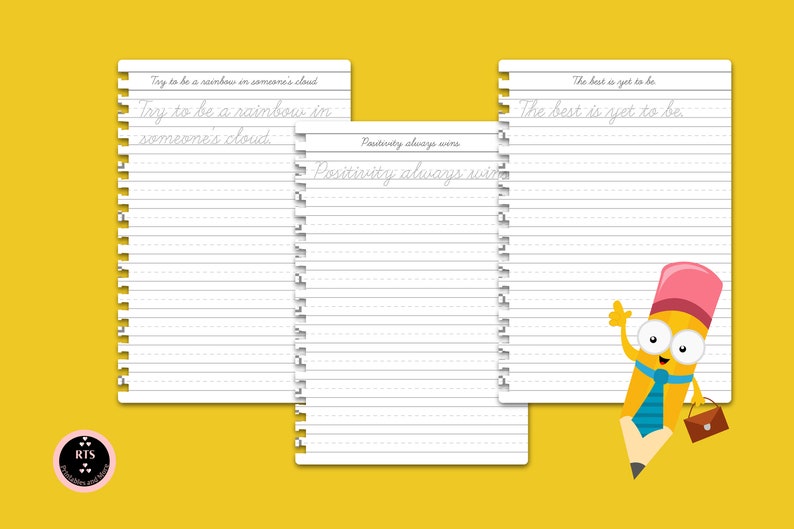 Try to be a rainbow in someone's cloud
Try to be a rainbow in
someone's cloud.
Positivity always wins
Positivity always wins
The best is yet to be.
The best is yet to be.
RTS
Printables and More